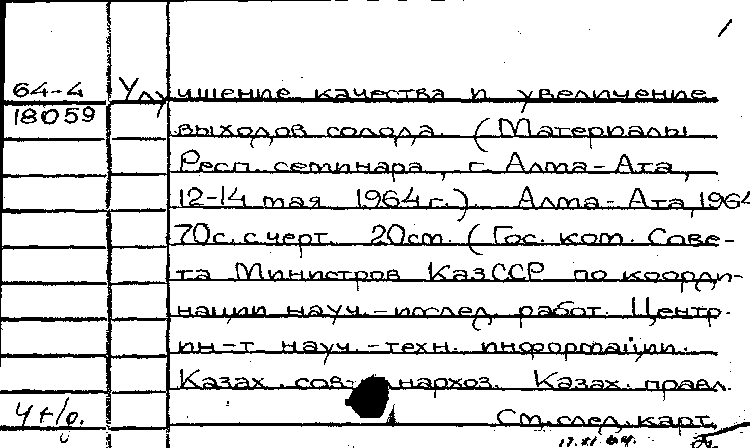 64-4 Улучшение качества и увеличение
18059
выходов солода. (Материалы
Респ. семинара, г. Алма-Ата,
12-14 мая 1964 г.). Алма-Ата, 1964
70с. с черт. 20см. (Гос. ком. Сове-
та Министров КазССР по коорди-
нации науч.-исслед. работ. Центр.
ин-т науч.-техн. информации.
Казах. сов. нархоз. Казах. правл.
См. след. карт.